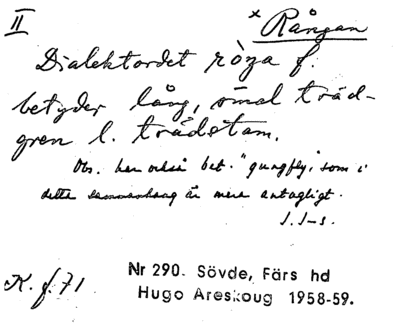 II
× Rångan
Dialektordet röya f.
betyder lång, smal träd-
gren l. trädstam.
Obs. har också bet. "gungfly", som i
detta sammanhang är mera antagligt.
J. I-s.
K. f. 71
Nr 290. Sövde, Färs hd
Hugo Areskoug 1958-59.